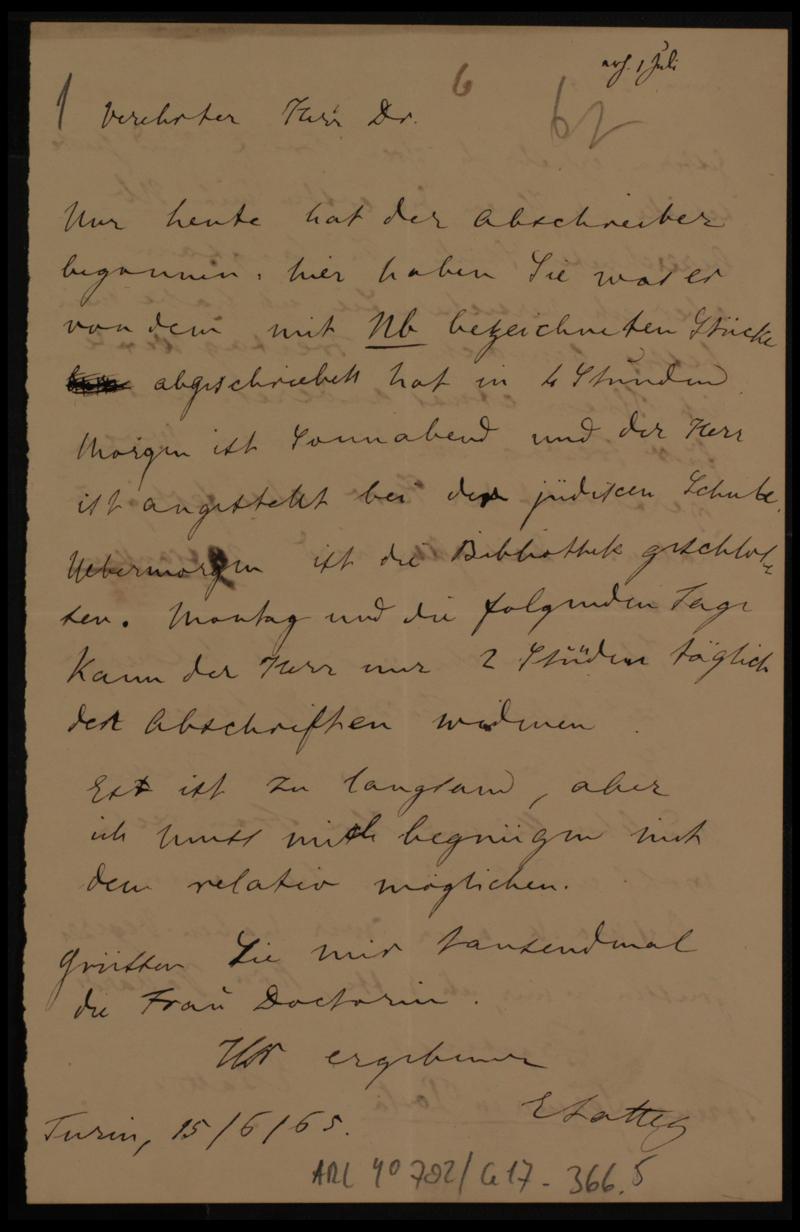 1 Juli
6
Verehrter Herr Dr.
Nur heute hat der Abschreiber
begonnen. hier haben Sie was er
von dem mit Nb bezeichneten Stücke
abgeschrieben hat in 4 Stunden
Morgen ist Sonnabend und der Herr
ist angestellt bei der jüdiscen Schule.
Uebermorgen ist die Bibliothek geschlos-
sen. Montag und die folgenden Tage
kann der Herr nur 2 Stünden täglich
den Abschriften widmen.
Es ist zu langsam, aber
ich muss mich begnügen mit
dem relativ möglichen.
Grüssen Sie mir tausendmal
die Frau Doctorin.
Ihr ergebener
Turin, 15/6/65.
ARC 4º 792/G17-366.5